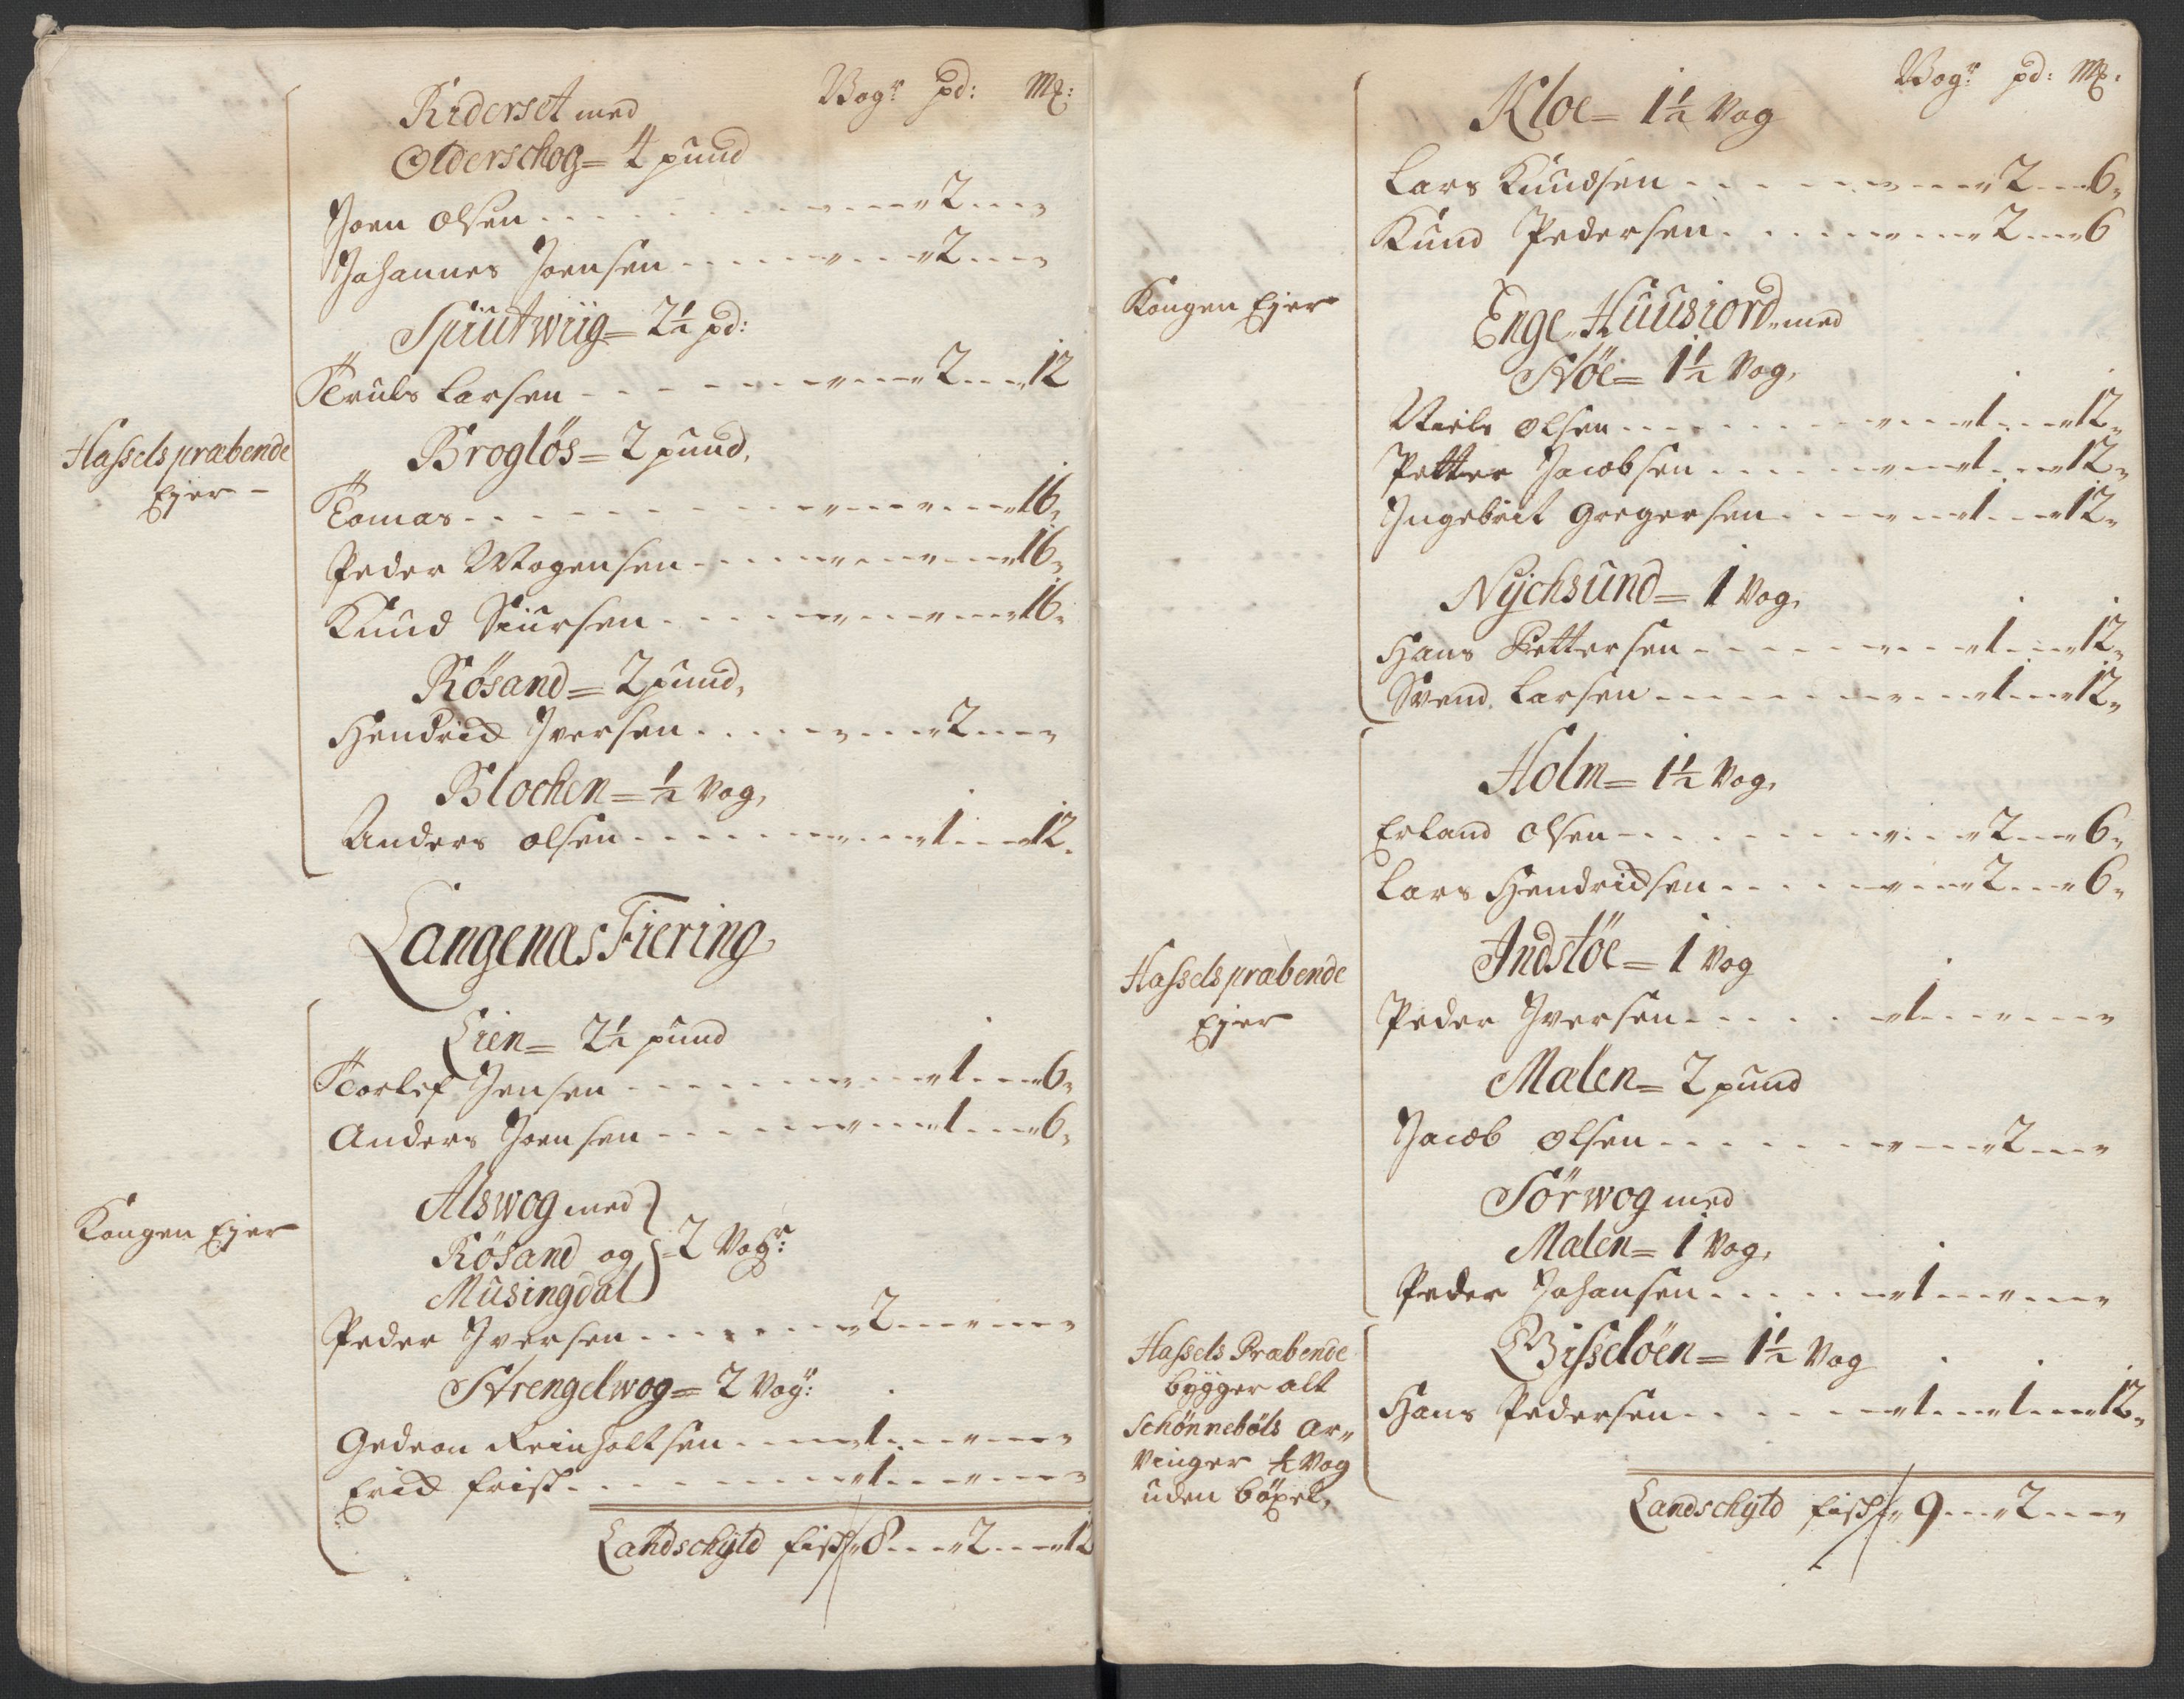 Vogr pd: M#:
Riderset med
Olderschog = 4 pund
Joen Olsen - - - " 2 - - - "
Johannes Joensen - - - " - - " 2 - - - "
Spiutwiig = 2½ pd:
Truls Larsen - - - " - - " 2 - - " 12
Hassels præbende
Ejer -
Broglös = 2 pund,
Tomas - - - " - - " - - " 16,
Peder Mogensen - - - " - - " - - " 16,
Knud Siursen - - - " - - " - - " 16,
Rösand = 2 pund,
Hendrich Iversen - - - " - - " 2 - - - "
Blochen = ½ Vog,
Anders Olsen - - - " - - " 1 - - " 12.
Langenæs Fiering,
Lien = 2½ pund
Torlef Jensen - - - " - - " 1 - - " 6,
Anders Joensen - - - " - - " 1 - - " 6,
Kongen Ejer
Alswog med
Rösand og = 2 Vogr:
Musingdal
Peder Iversen - - - " 2 - - " - - "
Strengelwog = 2 Vogr:
Gedeon Reinholtsen - - - " 1 - - " - - "
Erich Frisk - - - " 1 - - " - - "
Landschyld fisk " 8 - - " 2 - - " 12
Vogr: pd: M#:
Kloe = 1½ Vog
Lars Knudsen - - - " - - " 2 - - " 6,
Knud Pedersen - - - " - - " 2 - - " 6
Kongen Ejer
Enge, Huusiord, med
Støe = 1½ Vog,
Niels Olsen - - - " - - " 1 - - " 12,
Petter Jacobsen - - - " - - " 1 - - " 12,
Ingebrit Gregersen - - - " - - " 1 - - " 12,
Nychsund = 1 Vog,
Hans Pettersen - - - " - - " 1 - - " 12,
Svend Larsen - - - " - - " 1 - - " 12,
Holm = 1½ Vog,
Erland Olsen - - - " - - " 2 - - " 6,
Lars Hendrichsen - - - " - - " 2 - - " 6,
Hassels præbende
Ejer
Indstöe = 1 Vog
Peder Iversen - - - " 1 - - " - - "
Malen = 2 pund
Jacob Olsen - - - " - - " 2 - - - "
Sörwog med
Malen = 1 Vog,
Peder Johansen - - - " 1 - - " - - "
Hassels Præbende
bygger alt
Schønnebøls Ar„
vinger ½ Vog
uden böxel,
Gisselöen = 1½ Vog
Hans Pedersen - - - " 1 - - " 1 - - " 12,
Landschyld fisk " 9 - - " 2 - - - "